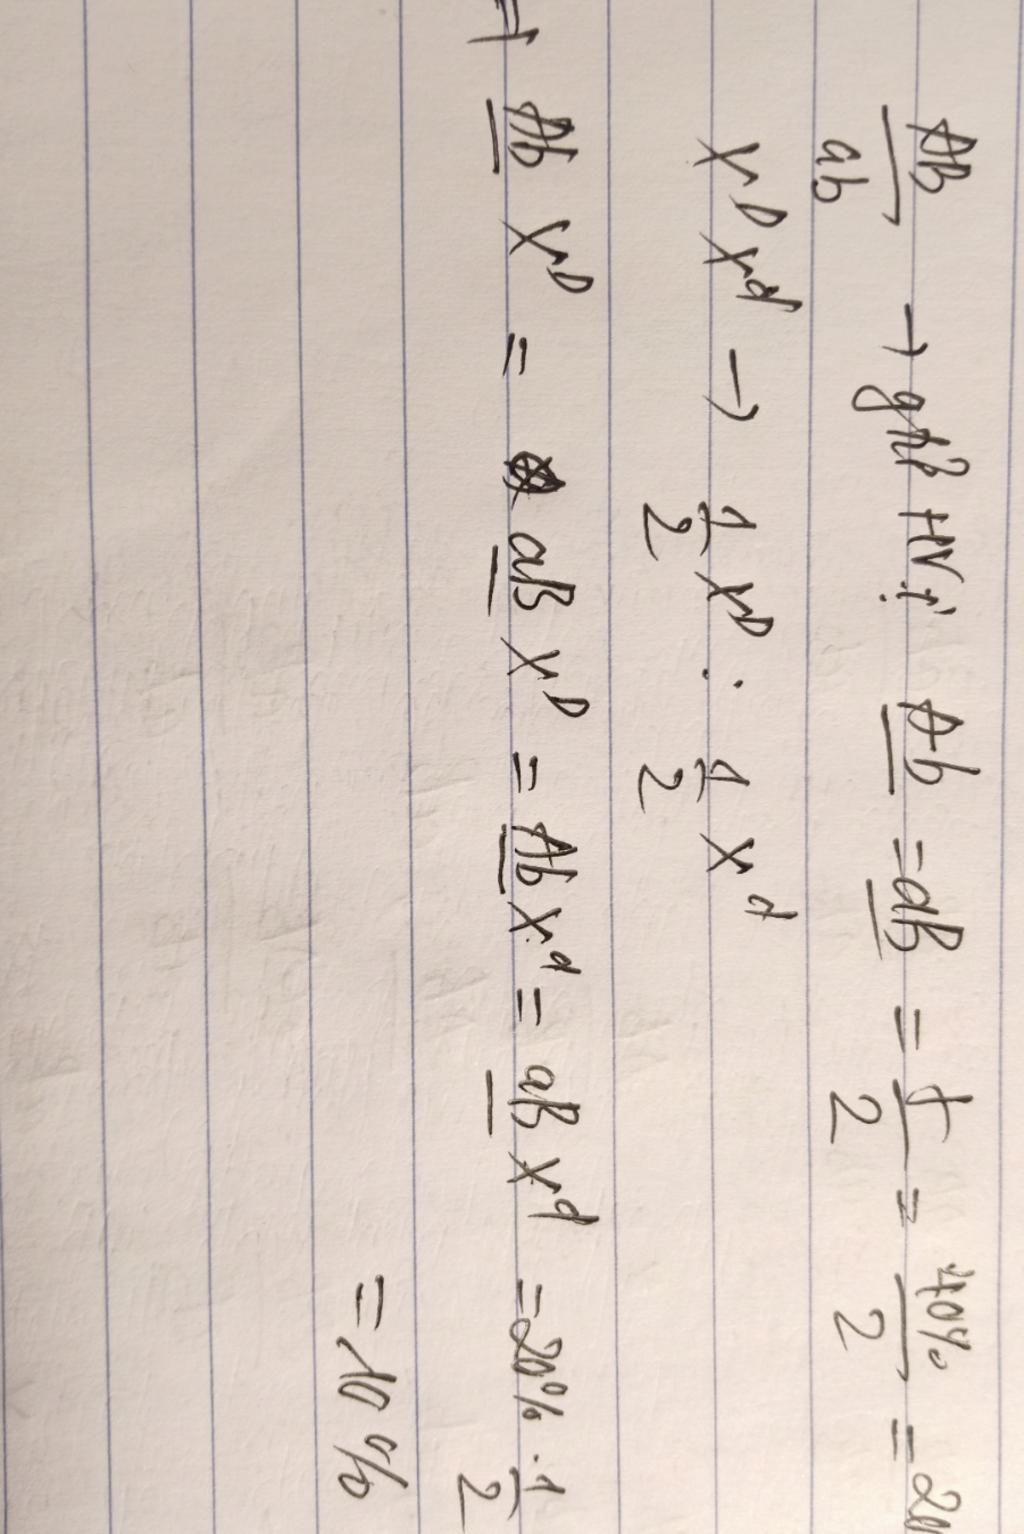 AB/ab → gtử HVị Ab = aB = f/2 = 40%/2 = 20
X^D X^d → 1/2 X^D : 1/2 X^d
→ Ab X^D = aB X^D = Ab X^d = aB X^d = 20% . 1/2
= 10%